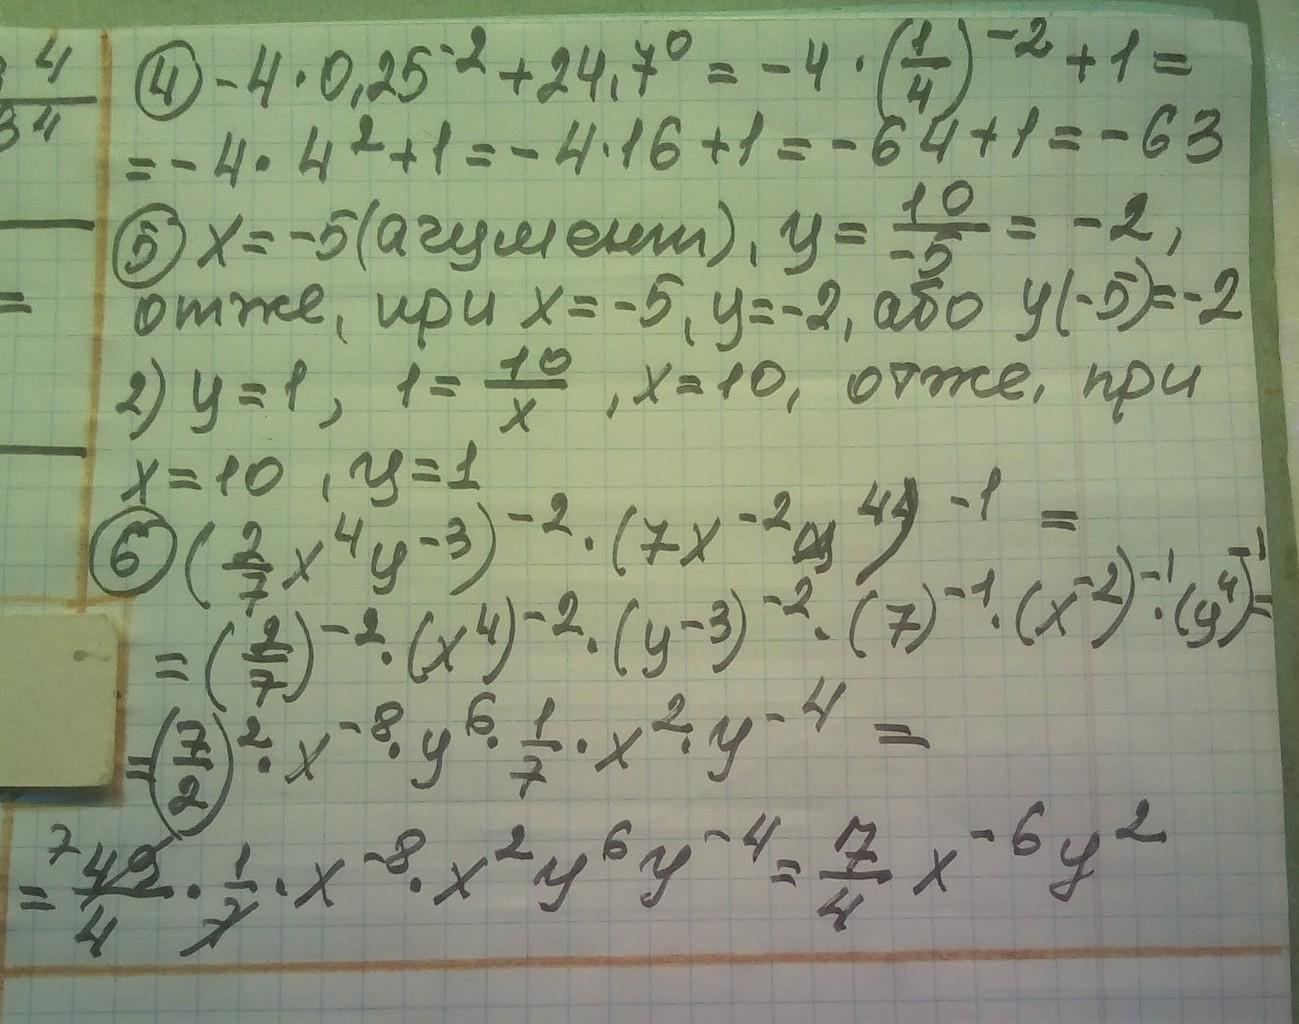 4
34
=
④ -4·0,25⁻² + 24,7⁰ = -4·(1/4)⁻² + 1 =
= -4·4² + 1 = -4·16 + 1 = -64 + 1 = -63
⑤ x = -5 (агумент), y = 10/-5 = -2,
отже, при x = -5, y = -2, або y(-5) = -2
2) y = 1, 1 = 10/x, x = 10, отже, при
x = 10, y = 1
⑥ (2/7 x⁴y⁻³)⁻² · (7x⁻²y⁴)⁻¹ =
= (2/7)⁻² · (x⁴)⁻² · (y⁻³)⁻² · (7)⁻¹ · (x⁻²)⁻¹ · (y⁴)⁻¹ =
= (7/2)² · x⁻⁸ · y⁶ · 1/7 · x² · y⁻⁴ =
= ⁷49/4 · 1/7 · x⁻⁸ · x² y⁶ y⁻⁴ = 7/4 x⁻⁶ y²